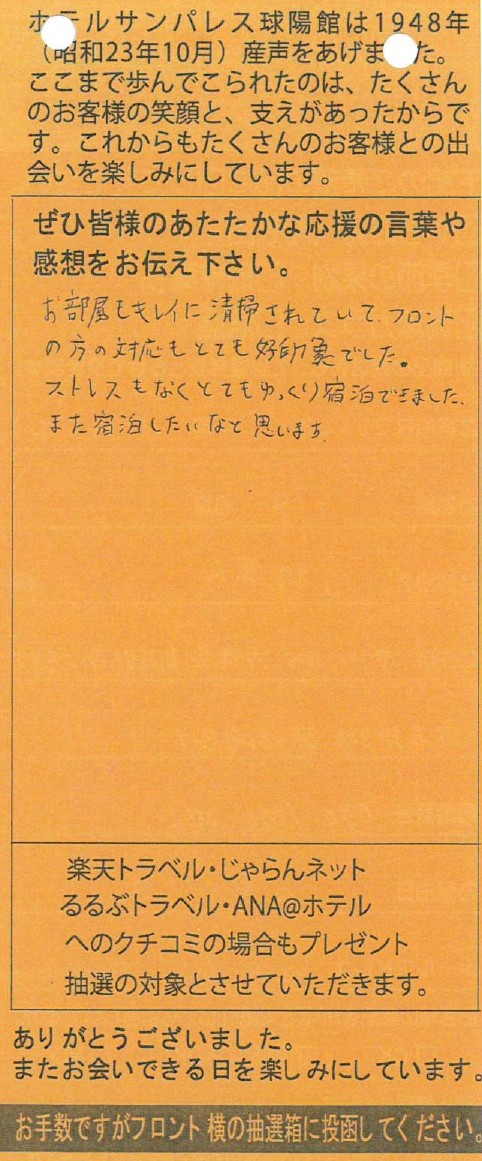 ホテルサンパレス球陽館は1948年
（昭和23年10月）産声をあげました。
ここまで歩んでこられたのは、たくさん
のお客様の笑顔と、支えがあったからで
す。これからもたくさんのお客様との出
会いを楽しみにしています。
ぜひ皆様のあたたかな応援の言葉や
感想をお伝え下さい。
お部屋もキレイに清掃されていて、フロント
の方の対応もとても好印象でした。
ストレスもなくとてもゆっくり宿泊できました、
また宿泊したいなと思います
楽天トラベル・じゃらんネット
るるぶトラベル・ANA@ホテル
へのクチコミの場合もプレゼント
抽選の対象とさせていただきます。
ありがとうございました。
またお会いできる日を楽しみにしています。
お手数ですがフロント横の抽選箱に投函してください。